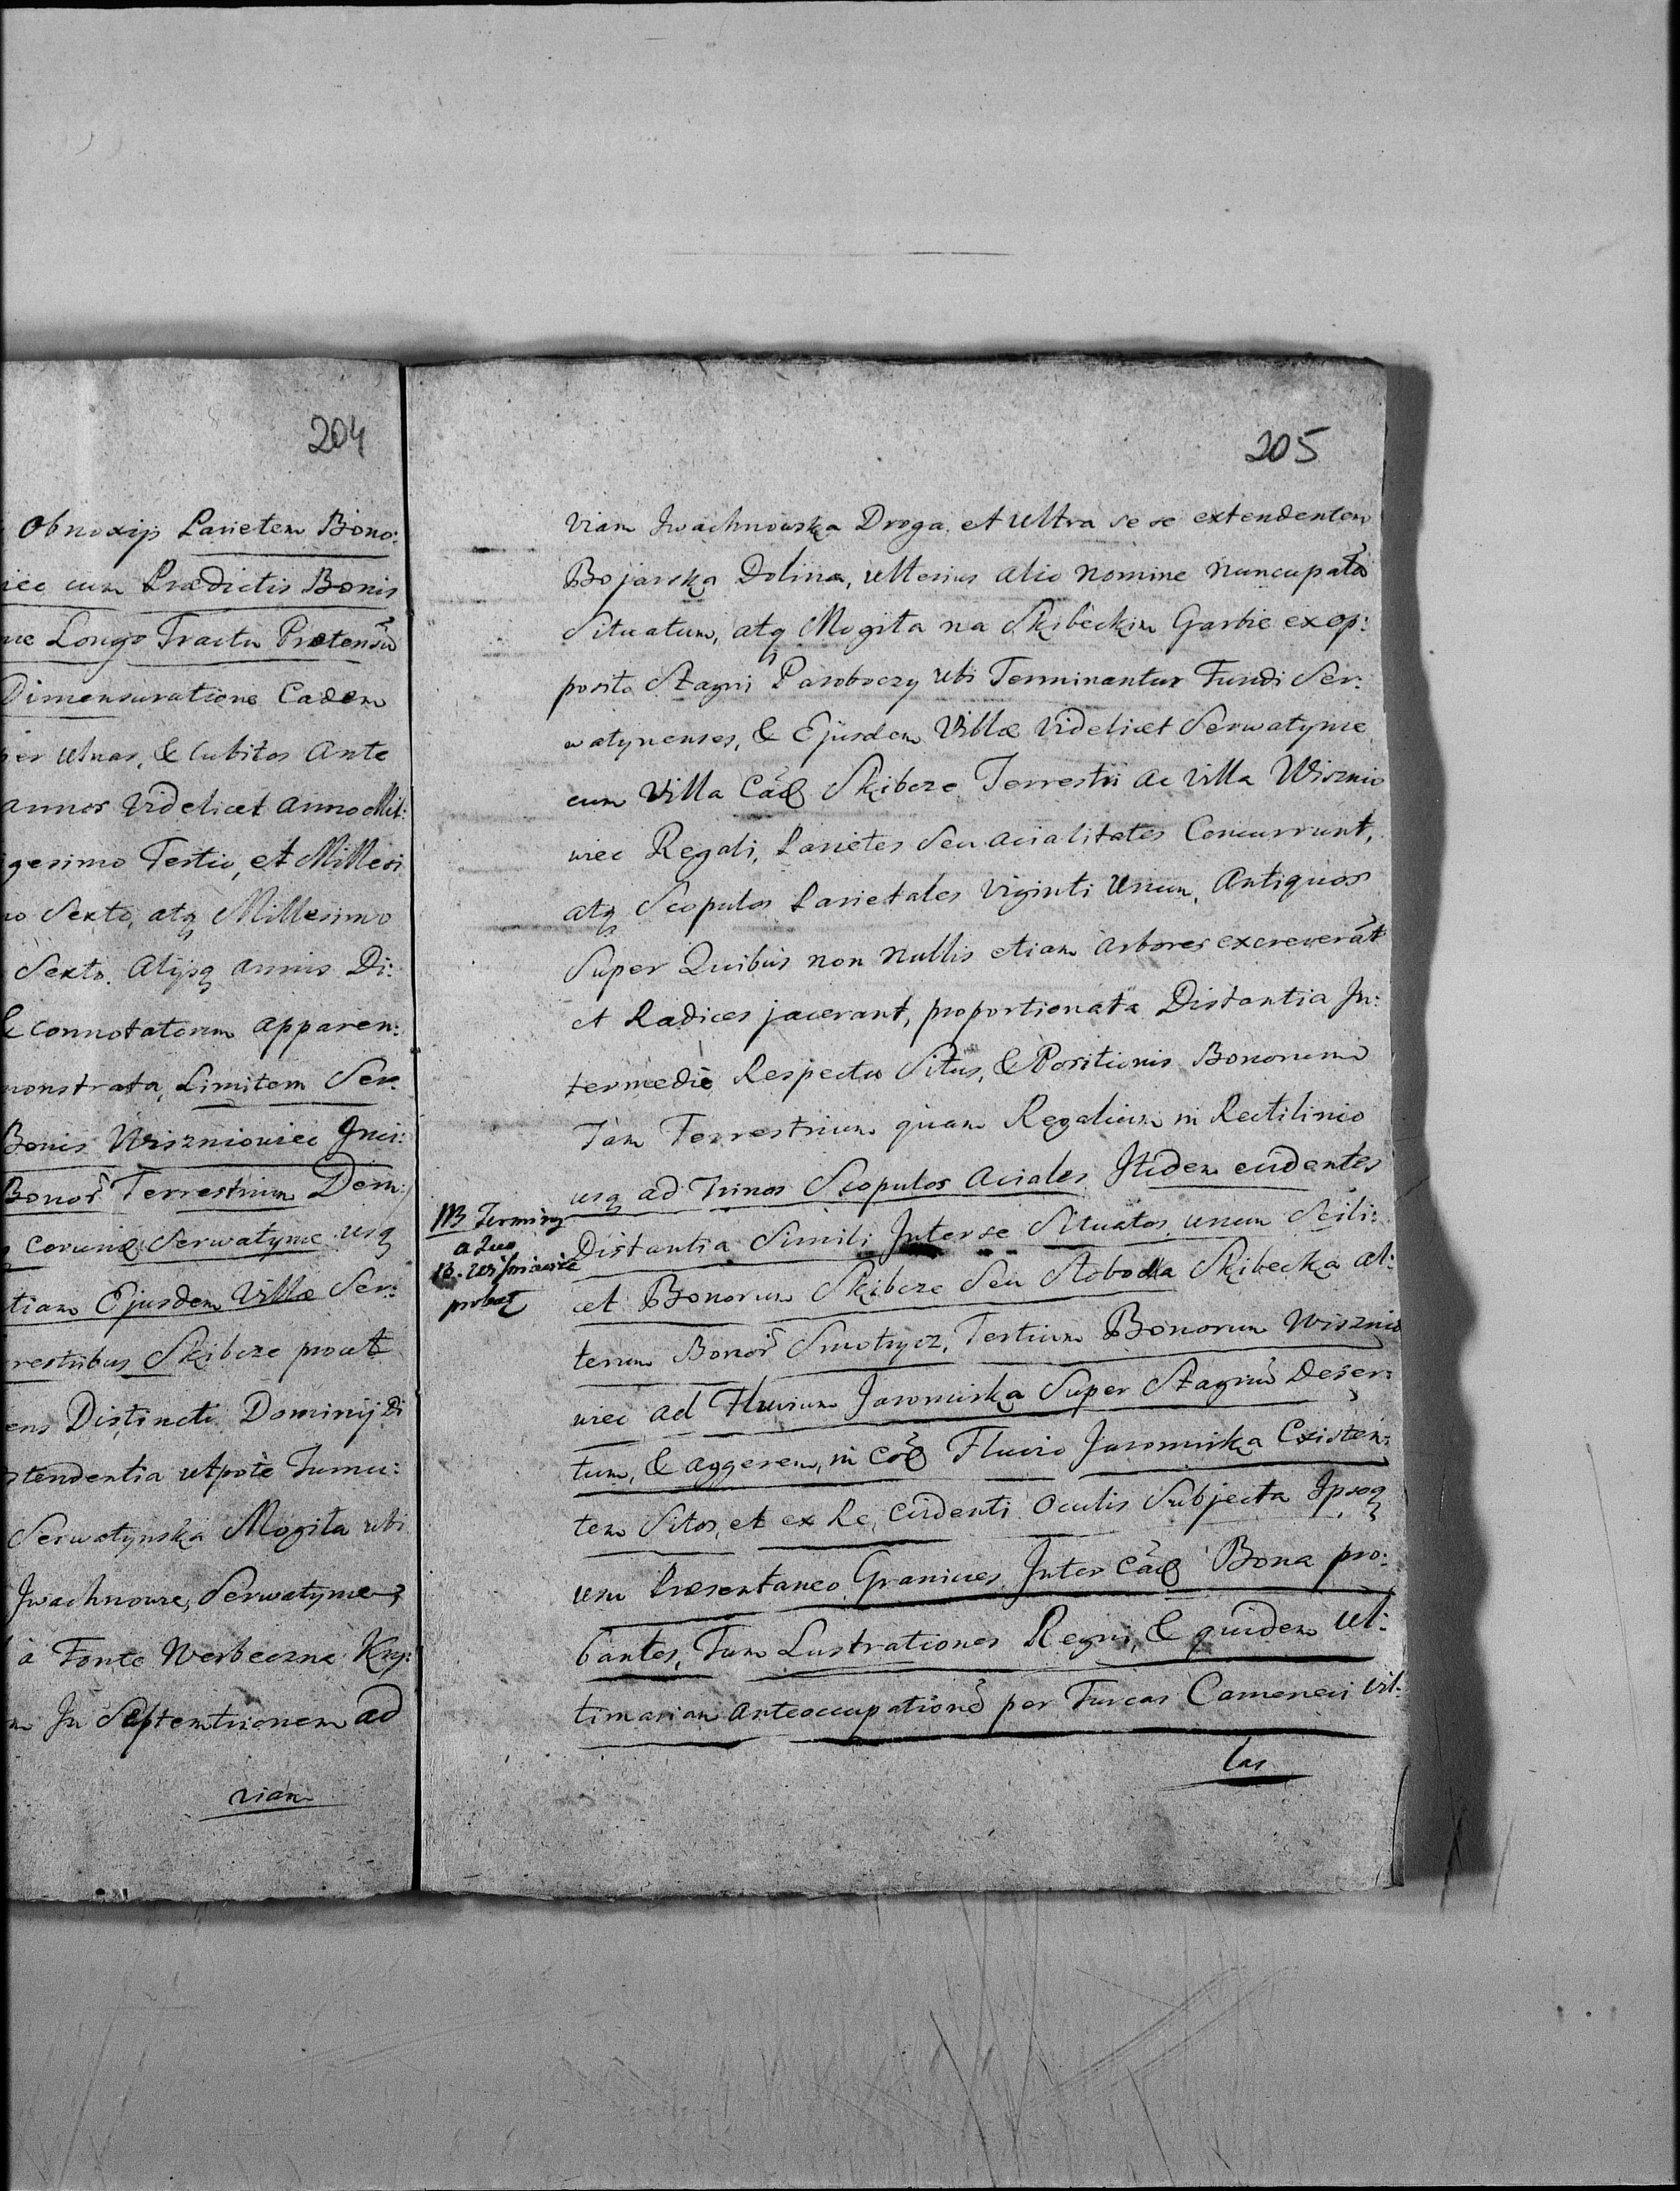 204
Obnoxijs Parietem Bono:
iec cum Prædictis Bonis
ue Longo Tractu Protensū
Dimensuratione Eadem
per ulnas, & Cubitos Ante
annos Videlicet anno Mil:
gesimo Tertio, et Millesi
no Sexto, atq Millesimo
Sexto. Alijsq annis Di:
& connotatorum apparen:
monstrata, Limitem Ser:
Bonis Wiszniowiec
Bonor̃ Terrestrium Dem:
Serwatynce usq
tiam Ejusdem Villæ Ser:
restribus Skibcze prout
ens Distincti Dominij Di
tendentia utpote Tumu:
Serwatynska Mogiła ubi
Jwachnowce, Serwatynce,
à Fonte Werbeczne Kry:
m In Septemtrionem ad
viam
205
viam Jwachnowska Droga et ultra se se extendentem
Bojarska Dolina, ulterius alio nomine nuncupatā
Situatum, atq Mogiła na Skibeckim Garbie ex op:
posito Stagni Paroboczy ubi Terminantur Fundi Ser:
watynenses, & Ejusdem Villæ Videlicet Serwatynce
cum Villa Eāq Skibcze Terrestri ac Villa Wisznio
wiec Regali, Parietes Seu acialitates Concurrunt,
atq Scopulos Parietales viginti Unum, Antiquos
Super Quibus non nullis etiam arbores excreverāt
et Radices jacerant, proportionata Distantia In:
termediè Respectu Situs, & Positionis Bonorum
Tam Terrestrium quam Regalium in Rectilinio
usq ad trinos Scopulos Aciales Itidem evidentes
Distantia Simili Inter se Situatos, unum Scili:
cet Bonorum Skibcze Seu Słoboda Skibecka al:
terum Bonor̃ Smotrycz, Tertium Bonorum Wisznio
wiec ad Fluvium Jaromirka Super Stagnū Deser:
tum, & aggerem, in eōq Fluvio Jaromirka Existen:
tem Sitos, et ex Re evidenti Oculis Subjecta Ipsoq
usu Præsentaneo Granicies Inter Eāq Bona pro:
bantes, Tum Lustrationes Regni, & quidem Ul:
timariam Anteoccupationē per Turcas Cameneci Vil:
las
NB Terminq
a Quo
probat